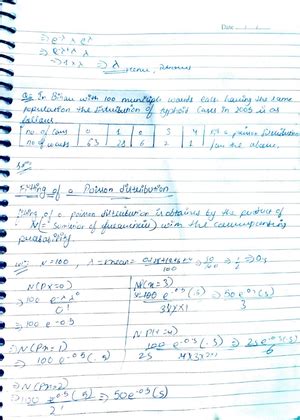 Date
⇒ e^λ e^λ
⇒ e^λ+λ λ
⇒ λ mean,
Q. In Bihar with 100 municipal wards each having the same
population the distribution of typhoid cases in 2005 is as
follows
no. of cases 0 1 2 3 4 Fit a poisson distribution
no. of wards 63 28 6 2 1 for the above.
Fitting of a Poisson distribution
Fitting of a poisson distribution is obtained by the product of
N (= summation of frequencies) with the corresponding
probability.
N = 100, λ = mean = 0+28+12+6+4 / 100 ⇒ 50/100 ⇒ 1/2 ⇒ 0.5
N(PX=0)
⇒ 100 e^-λ λ^0 / 0!
⇒ 100 e^-0.5
⇒ N(PX=1)
⇒ 100 e^-0.5 (.5)
⇒ N(PX=2)
⇒ 100 e^-0.5 (.5) / 2! ⇒ 50 e^-0.5 (.5)
N(PX=3)
100 e^-0.5 (.5) / 3×2×1 ⇒ 50 e^-0.5 (.5) / 3
N.P(X=4)
100 e^-0.5 (.5) / 4×3×2×1 ⇒ 25 e^-0.5 (.5) / 6